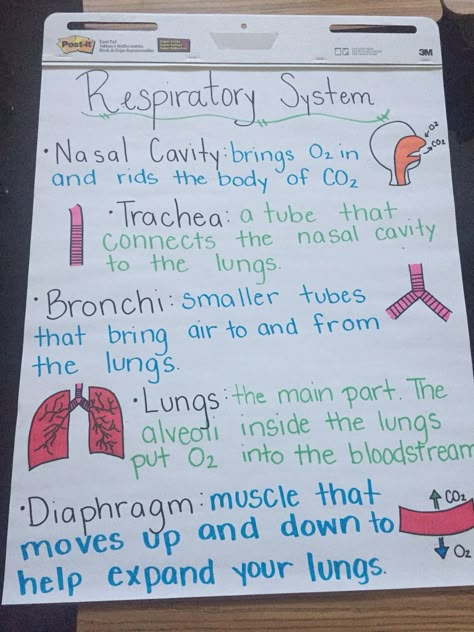 Post-it
3M
Respiratory System
O2
CO2
• Nasal Cavity: brings O2 in
and rids the body of CO2
• Trachea: a tube that
connects the nasal cavity
to the lungs.
• Bronchi: smaller tubes
that bring air to and from
the lungs.
• Lungs: the main part. The
alveoli inside the lungs
put O2 into the bloodstream
• Diaphragm: muscle that
moves up and down to
help expand your lungs.
CO2
O2